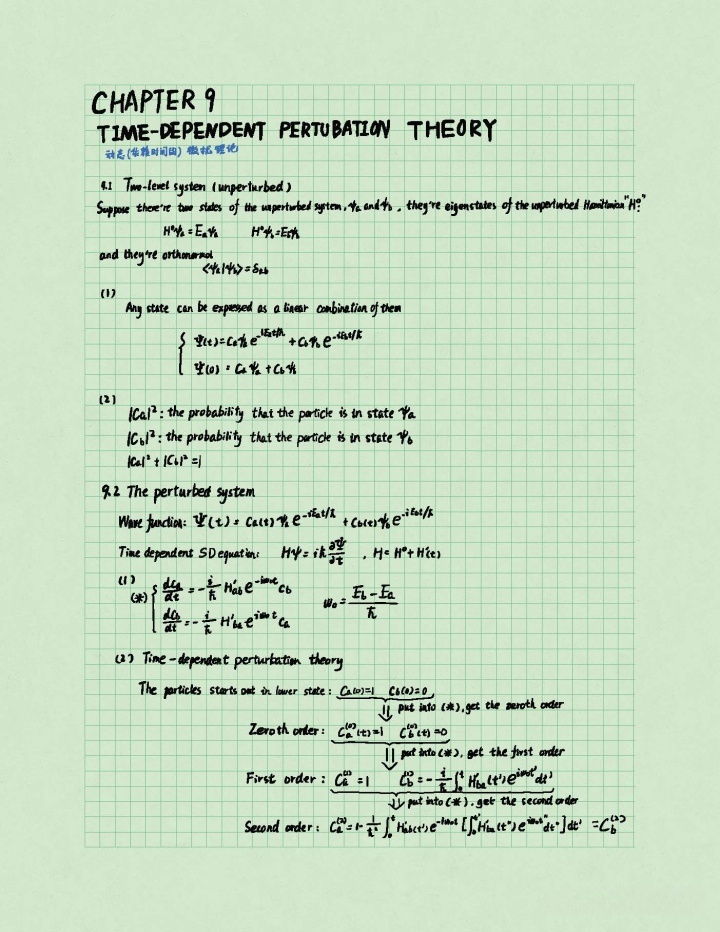 CHAPTER 9
TIME-DEPENDENT PERTUBATION THEORY
动态(依赖时间的) 微扰理论
9.1 Two-level system (unperturbed)
Suppose there're two states of the unperturbed system, ψa and ψb, they're eigenstates of the unperturbed Hamiltonian "H⁰"
H⁰ψa = Eaψa H⁰ψb = Ebψb
and they're orthonormal
⟨ψa|ψb⟩ = δab
(1)
Any state can be expressed as a linear combination of them
Ψ(t) = Caψa e^{-iEat/ħ} + Cbψb e^{-iEbt/ħ}
Ψ(0) = Caψa + Cbψb
(2)
|Ca|²: the probability that the particle is in state ψa
|Cb|²: the probability that the particle is in state ψb
|Ca|² + |Cb|² = 1
9.2 The perturbed system
Wave function: Ψ(t) = Ca(t)ψa e^{-iEat/ħ} + Cb(t)ψb e^{-iEbt/ħ}
Time dependent SD equation: Hψ = iħ ∂Ψ/∂t , H = H⁰ + H'(t)
(1)
(*) { dCa/dt = -i/ħ H'ab e^{-iω₀t} Cb
dCb/dt = -i/ħ H'ba e^{iω₀t} Ca
ω₀ = (Eb - Ea)/ħ
(2) Time-dependent perturbation theory
The particles starts out in lower state: Ca(0)=1 Cb(0)=0
⇓ put into (*), get the zeroth order
Zeroth order: Ca^{(0)}(t)=1 Cb^{(0)}(t)=0
⇓ put into (*), get the first order
First order: Ca^{(1)} = 1 Cb^{(1)} = -i/ħ ∫₀ᵗ H'ba(t') e^{iω₀t'} dt'
⇓ put into (*), get the second order
Second order: Ca^{(2)} = 1 - 1/ħ² ∫₀ᵗ H'ab(t') e^{-iω₀t} [∫₀^{t'} H'ba(t'') e^{iω₀t''} dt''] dt' = Cb^{(2)}